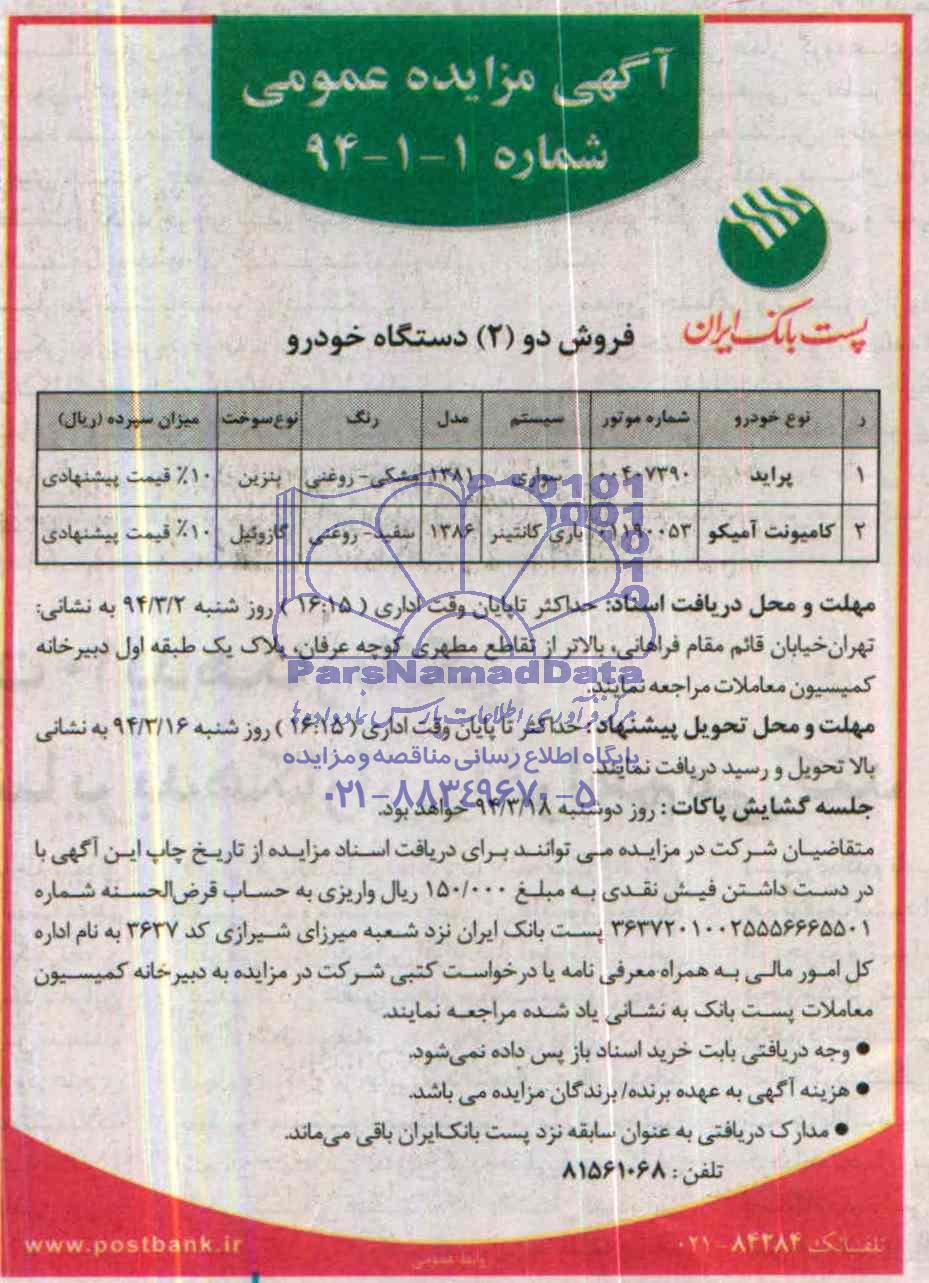 آگهی مزایده عمومی
شماره ۱-۱-۹۴
پست بانک ایران
فروش دو (۲) دستگاه خودرو
ر نوع خودرو شماره موتور سیستم مدل رنگ نوع سوخت میزان سپرده (ریال)
۱ پراید ۰۰۴۰۷۳۹۰ سواری ۱۳۸۱ مشکی- روغنی بنزین ۱۰٪ قیمت پیشنهادی
۲ کامیونت آمیکو ۰۱۱۹۰۰۵۳ باری کانتینر ۱۳۸۶ سفید- روغنی گازوئیل ۱۰٪ قیمت پیشنهادی
مهلت و محل دریافت اسناد: حداکثر تاپایان وقت اداری ( ۱۶:۱۵ ) روز شنبه ۹۴/۳/۲ به نشانی:
تهران‌خیابان قائم مقام فراهانی، بالاتر از تقاطع مطهری کوچه عرفان، پلاک یک طبقه اول دبیرخانه
ParsNamadData
کمیسیون معاملات مراجعه نمایند.
مرکز فرآوری اطلاعات پارس نماد داده‌ها
مهلت و محل تحویل پیشنهاد : حداکثر تا پایان وقت اداری ( ۱۶:۱۵ ) روز شنبه ۹۴/۳/۱۶ به نشانی
پایگاه اطلاع رسانی مناقصه و مزایده
بالا تحویل و رسید دریافت نمایند.
۰۲۱-۸۸۳۴۹۶۷۰-۵
جلسه گشایش پاکات : روز دوشنبه ۹۴/۳/۱۸ خواهد بود.
متقاضیان شرکت در مزایده می توانند برای دریافت اسناد مزایده از تاریخ چاپ این آگهی با
در دست داشتن فیش نقدی به مبلغ ۱۵۰/۰۰۰ ریال واریزی به حساب قرض‌الحسنه شماره
۳۶۳۷۲۰۱۰۰۲۵۵۵۶۶۶۵۵۰۱ پست بانک ایران نزد شعبه میرزای شیرازی کد ۳۶۳۷ به نام اداره
کل امور مالی به همراه معرفی نامه یا درخواست کتبی شرکت در مزایده به دبیرخانه کمیسیون
معاملات پست بانک به نشانی یاد شده مراجعه نمایند.
● وجه دریافتی بابت خرید اسناد باز پس داده نمی‌شود.
● هزینه آگهی به عهده برنده/ برندگان مزایده می باشد.
● مدارک دریافتی به عنوان سابقه نزد پست بانک‌ایران باقی می‌ماند.
تلفن : ۸۱۵۶۱۰۶۸
تلفنبانک ۸۴۲۸۴-۰۲۱
روابط عمومی
www.postbank.ir